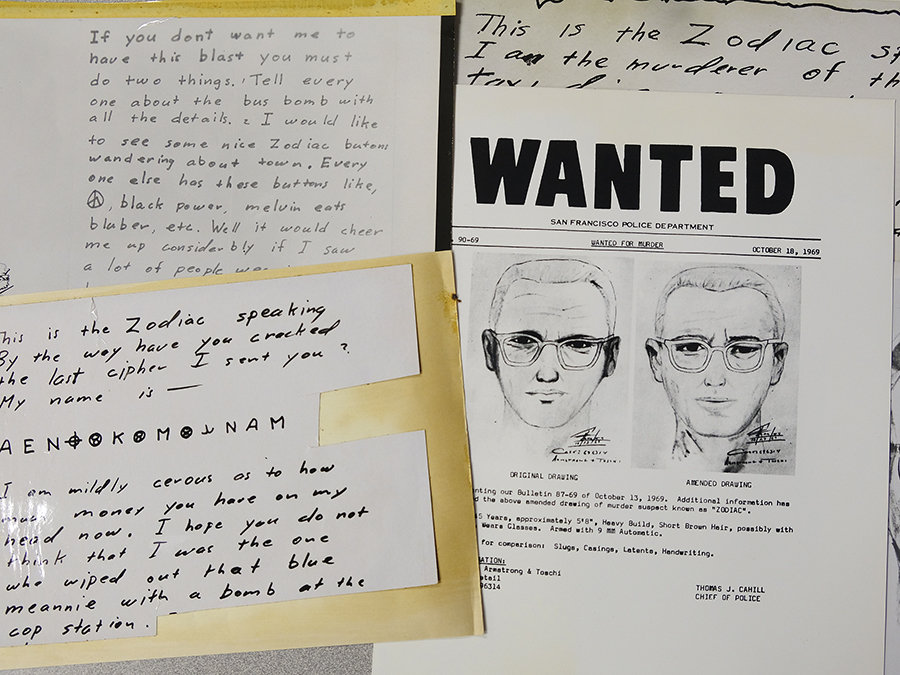 If you dont want me to
have this blast you must
do two things. 1 Tell every
one about the bus bomb with
all the details. 2 I would like
to see some nice Zodiac butons
wandering about town. Every
one else has these buttons like,
, black power, melvin eats
bluber, etc. Well it would cheer
me up considerbly if I saw
a lot of people
This is the Zodiac speaking
By the way have you cracked
the last cipher I sent you?
My name is —
AEN K M NAM
I am mildly cerous as to how
much money you have on my
head now. I hope you do not
think that I was the one
who wiped out that blue
meannie with a bomb at the
cop station.
This is the Zodiac
I am the murderer of
WANTED
SAN FRANCISCO POLICE DEPARTMENT
90-69 WANTED FOR MURDER OCTOBER 18, 1969
ORIGINAL DRAWING AMENDED DRAWING
our Bulletin 87-69 of October 13, 1969. Additional information has
the above amended drawing of murder suspect known as "ZODIAC".
Years, approximately 5'8", Heavy Build, Short Brown Hair, possibly with
Wears Glasses. Armed with 9 MM Automatic.
for comparison: Slugs, Casings, Latents, Handwriting.
Armstrong & Toschi
THOMAS J. CAHILL
CHIEF OF POLICE